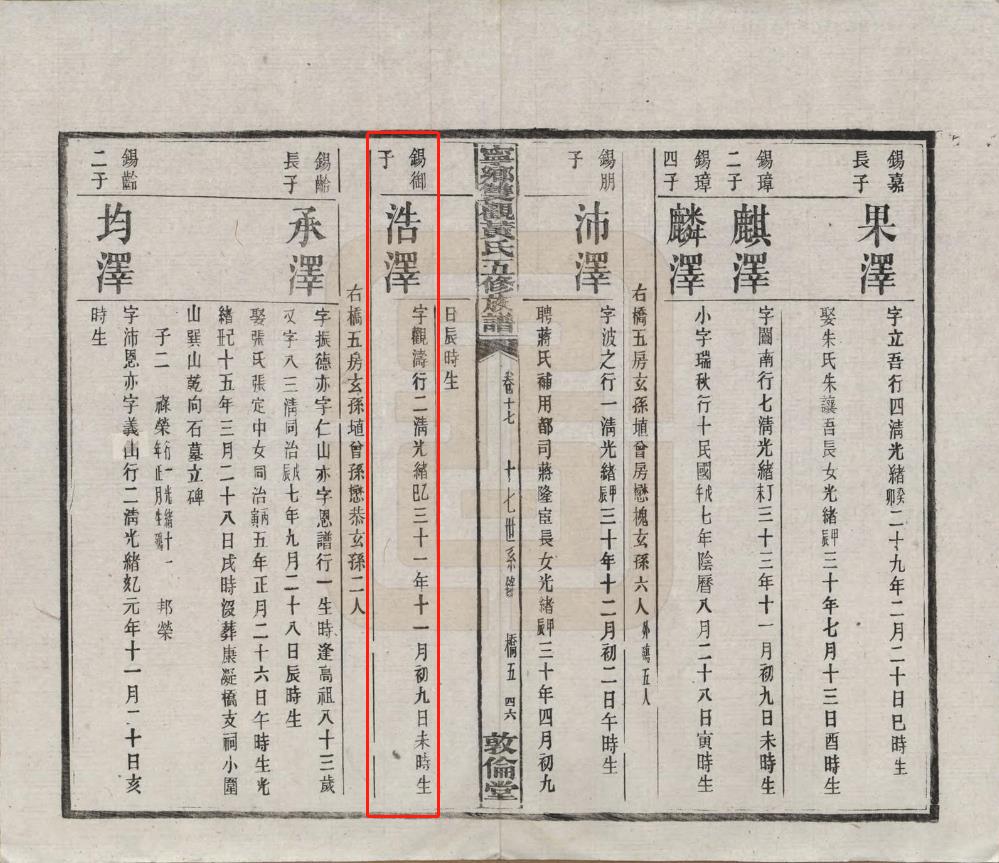 錫嘉長子
果澤
字立吾行四清光緒癸卯二十九年二月二十日巳時生
娶朱氏朱讓吾長女光緒甲辰三十年七月十三日酉時生
錫璋二子
麒澤
字閩南行七清光緒丁未三十三年十一月初九日未時生
錫璋四子
麟澤
小字瑞秋行十民國戊午七年陰曆八月二十八日寅時生
右橋五房玄孫埴曾房懋槐玄孫六人外鴻五人
錫朋子
沛澤
字波之行一清光緒甲辰三十年十二月初二日午時生
聘蔣氏補用都司蔣隆宦長女光緒甲辰三十年四月初九
寧鄉雙觀黃氏五修族譜
卷十七 十七世系 橋五 四六
敦倫堂
日辰時生
錫御子
浩澤
字觀濤行二清光緒乙巳三十一年十一月初九日未時生
右橋五房玄孫埴曾孫懋恭玄孫二人
錫齡長子
承澤
字振德亦字仁山亦字恩譜行一生時逢高祖八十三歲
又字八三清同治戊辰七年九月二十八日辰時生
娶張氏張定中女同治丙寅五年正月二十六日午時生光
緒己丑十五年三月二十八日戌時沒葬康凝橋支祠小圍
山巽山乾向石墓立碑
子二 祿榮 邦榮
錫齡二子
均澤
字沛恩亦字義山行二清光緒元年十一月二十日亥
時生